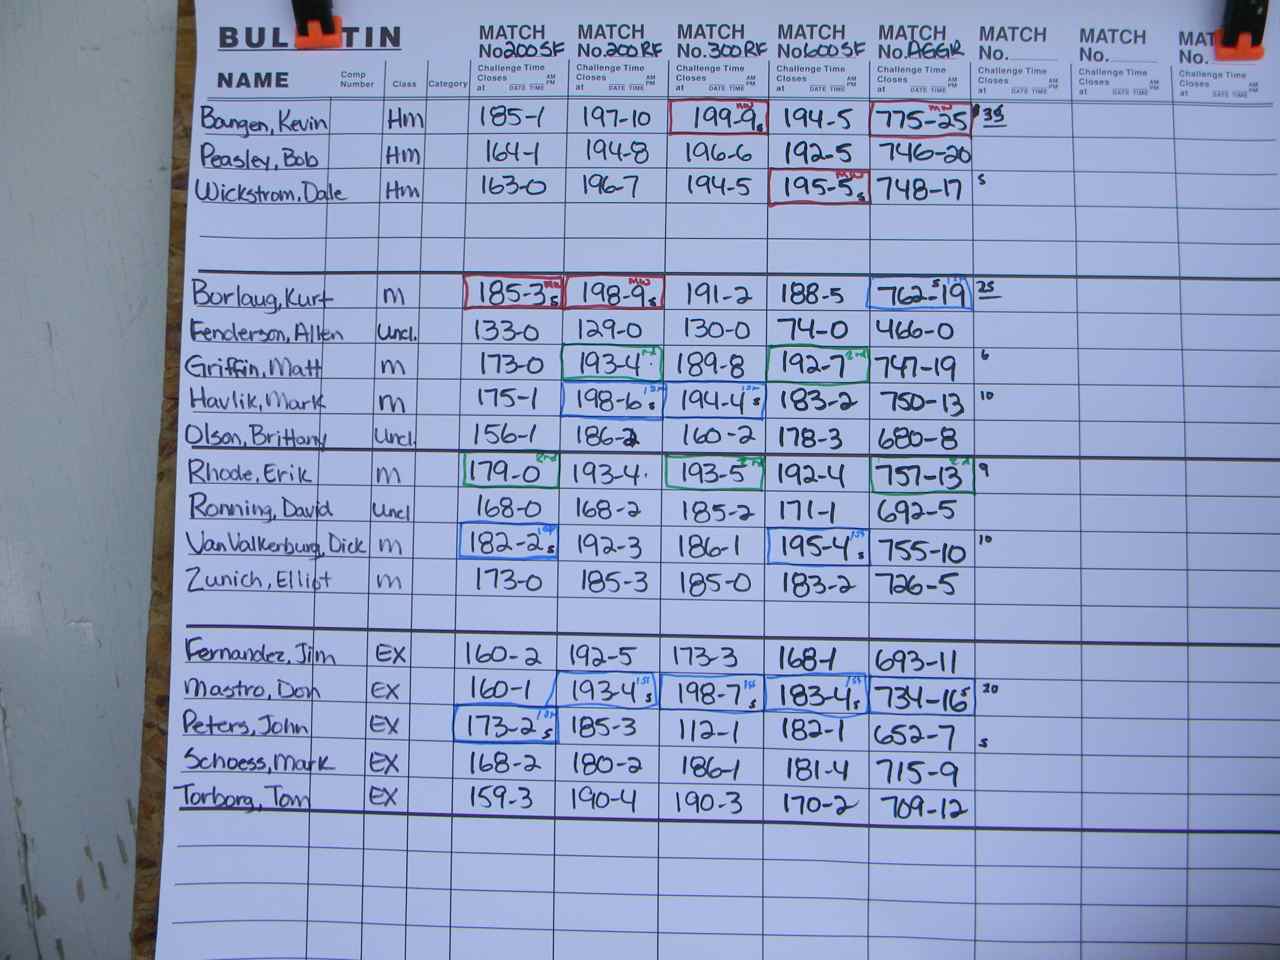 BUL TIN MATCH MATCH MATCH MATCH MATCH MATCH MATCH MAT
No. 200 SF No. 200 RF No. 300 RF No. 600 SF No. AGGR No. No. No.
NAME Comp Number Class Category Challenge Time Closes at AM PM DATE TIME Challenge Time Closes at AM PM DATE TIME Challenge Time Closes at AM PM DATE TIME Challenge Time Closes at AM PM DATE TIME Challenge Time Closes at AM PM DATE TIME Challenge Time Closes at AM PM DATE TIME Challenge Time Closes at AM PM DATE TIME Challenge Time Closes at
Bangen, Kevin Hm 185-1 197-10 199-9 MW 194-5 775-25 MW $35
Peasley, Bob Hm 164-1 194-8 196-6 192-5 746-20
Wickstrom, Dale Hm 163-0 196-7 194-5 195-5 MW 5 748-17 5
Borlaug, Kurt m 185-3 MW 5 198-9 MW 5 191-2 188-5 762-19 5 1st 25
Fenderson, Allen Uncl. 133-0 129-0 130-0 74-0 466-0
Griffin, Matt m 173-0 193-4 189-8 192-7 2nd 747-19 6
Havlik, Mark m 175-1 198-6 1st 5 194-4 1st 5 183-2 750-13 10
Olson, Brittany Uncl. 156-1 186-2 160-2 178-3 680-8
Rhode, Erik m 179-0 2nd 193-4 193-5 2nd 192-4 757-13 2nd 9
Ronning, David Uncl 168-0 168-2 185-2 171-1 692-5
VanValkerburg, Dick m 182-2 1st 5 192-3 186-1 195-4 1st 5 755-10 10
Zunich, Elliot m 173-0 185-3 185-0 183-2 726-5
Fernandez, Jim EX 160-2 192-5 173-3 168-1 693-11
Mastro, Don EX 160-1 193-4 1st 5 198-7 1st 5 183-4 1st 5 734-16 5 20
Peters, John EX 173-2 1st 5 185-3 112-1 182-1 652-7 5
Schoess, Mark EX 168-2 180-2 186-1 181-4 715-9
Torborg, Tom EX 159-3 190-4 190-3 170-2 709-12